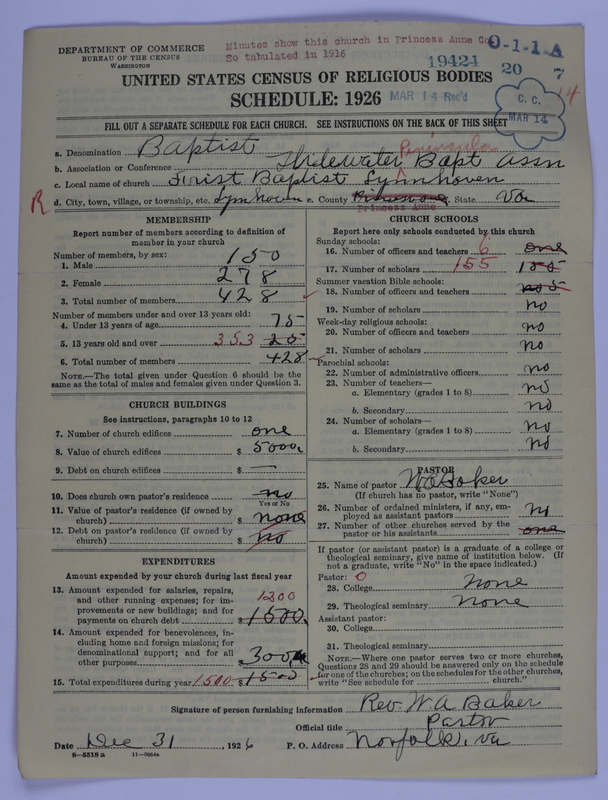 DEPARTMENT OF COMMERCE
BUREAU OF THE CENSUS
WASHINGTON
Minutes show this church in Princess Anne Co.
So tabulated in 1916
0-1-1A
19424
20 7
UNITED STATES CENSUS OF RELIGIOUS BODIES
SCHEDULE: 1926
MAR 14 Rec'd
C. C.
MAR 14
14
FILL OUT A SEPARATE SCHEDULE FOR EACH CHURCH. SEE INSTRUCTIONS ON THE BACK OF THIS SHEET
a. Denomination Baptist
Peninsula
b. Association or Conference Tidewater Bapt Assn
c. Local name of church First Baptist Lynnhaven
R d. City, town, village, or township, etc. Lynnhaven e. County Princess Anne State Va
MEMBERSHIP
Report number of members according to definition of
member in your church
Number of members, by sex:
1. Male 150
2. Female 278
3. Total number of members 428
Number of members under and over 13 years old:
4. Under 13 years of age 75
5. 13 years old and over 353
6. Total number of members 428
NOTE.—The total given under Question 6 should be
same as the total of males and females given under Question 3.
CHURCH BUILDINGS
See instructions, paragraphs 10 to 12
7. Number of church edifices one
8. Value of church edifices $ 5000
9. Debt on church edifices $ —
10. Does church own pastor's residence no
Yes or No
11. Value of pastor's residence (if owned by
church) $ none
12. Debt on pastor's residence (if owned by
church) $ no
EXPENDITURES
Amount expended by your church during last fiscal year
13. Amount expended for salaries, repairs,
and other running expenses; for im-
provements or new buildings; and for
payments on church debt $ 1500
1200
14. Amount expended for benevolences, in-
cluding home and foreign missions; for
denominational support; and for all
other purposes 300
15. Total expenditures during year 1500 $ 1500
CHURCH SCHOOLS
Report here only schools conducted by this church
Sunday schools:
16. Number of officers and teachers 6 one
17. Number of scholars 155
Summer vacation Bible schools:
18. Number of officers and teachers no
19. Number of scholars no
Week-day religious schools:
20. Number of officers and teachers no
21. Number of scholars no
Parochial schools:
22. Number of administrative officers no
23. Number of teachers—
a. Elementary (grades 1 to 8) no
b. Secondary no
24. Number of scholars—
a. Elementary (grades 1 to 8) no
b. Secondary no
PASTOR
25. Name of pastor W A Baker
(If church has no pastor, write "None")
26. Number of ordained ministers, if any, em-
ployed as assistant pastors no
27. Number of other churches served by the
pastor or his assistants one
If pastor (or assistant pastor) is a graduate of a college or
theological seminary, give name of institution below. (If
not a graduate, write "No" in the space indicated.)
Pastor: 0
28. College None
29. Theological seminary None
Assistant pastor:
30. College
31. Theological seminary
NOTE.—Where one pastor serves two or more churches,
Questions 28 and 29 should be answered only on the schedule
for one of the churches; on the schedules for the other churches,
write "See schedule for church."
Signature of person furnishing information Rev. W A Baker
Official title Pastor
Date Dec 31, 1926 P. O. Address Norfolk, Va
8—5518 a 11—9064a